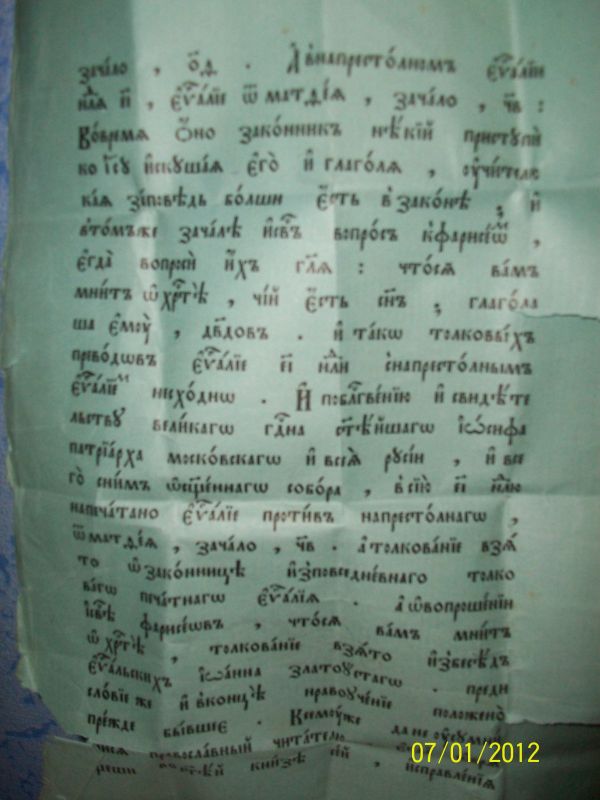 зача́ло , о҃д . А҆ внапресто́лномъ є҆ѵⷢ҇а́лїи
нⷣ҇ля и҃ , є҆ѵⷢ҇а́лїе ѿ матѳе́я , зача́ло , ч҃в :
Во́время ѻ҆́но зако́нникъ нѣ́кїй приступѝ
ко і҆с҃у и҆скуша́я є҆го̀ и҆ глаго́ля , ᲂу҆чи́телю
ка́я за́повѣдь бо́лши є҆́сть взако́нѣ , и҆
вто́мъже зача́лѣ и҆сⷭ҇въ вопро́съ кфарисе́ѡмъ ,
є҆гда̀ вопросѝ и҆́хъ гл҃я : что́ся ва́мъ
мни́тъ ѡ҆ хрⷭ҇тѣ̀ , чі́й є҆́сть сн҃ъ , глаго́ла
ша є҆мꙋ̀ , дв҃довъ . и҆ та́кѡ толко́выхъ
прево́дѡвъ є҆ѵⷢ҇а́лїе є҃і нⷣ҇ли снапресто́лнымъ
є҆ѵⷢ҇а́лїемъ несхо́днѡ . И҆ поблагⷭ҇ве́нїю и҆ свидѣ́те
льству вели́кагѡ гдⷭ҇на ст҃ѣ́йшагѡ і҆ѡ́сифа
патрїа́рха моско́вскагѡ и҆ всея̀ русі́и , и҆ все
го̀ сни́мъ ѡ҆сщ҃е́ннагѡ собо́ра , всїю̀ є҃і нⷣ҇лю
напеча́тано є҆ѵⷢ҇а́лїе проти́въ напресто́лнагѡ ,
ѿ матѳе́я , зача́ло , ч҃в . а҆ толкова́нїе взѧ́
то ѡ҆ зако́нницѣ и҆зповседне́внаго толко
вагѡ печа́тнагѡ є҆ѵⷢ҇а́лїя . а҆ ѡ҆вопроше́нїи
і҆сⷭ҇вѣ фарисе́ѡвъ , что́ся ва́мъ мни́тъ
ѡ҆ хрⷭ҇тѣ̀ , толкова́нїе взя́то и҆збесѣ́дъ
є҆ѵⷢ҇а́льскихъ і҆ѡа́нна златоу́стагѡ . преди
сло́вїе же и҆ вконцѣ̀ нравоуче́нїе поло́жено
пре́жде бы́вшее . Ксемꙋ́же да не ᲂу҆сумни́
чися правосла́вный чита́телю
кни́зѣ се́й , и҆справле́нїя
07/01/2012